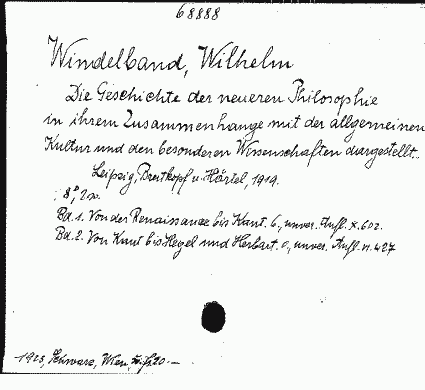 68888
Windelband, Wilhelm
Die Geschichte der neueren Philosophie
in ihrem Zusammenhange mit der allgemeinen
Kultur und den besonderen Wissenschaften dargestellt.
Leipzig, Breitkopf u. Härtel, 1919.
8°, 2
Bd. 1. Von der Renaissance bis Kant. 6., unver. Aufl. x. 602.
Bd. 2. Von Kant bis Hegel und Herbart. 6., unver. Aufl. 427
1923, Schwarz, Wien, 20.—